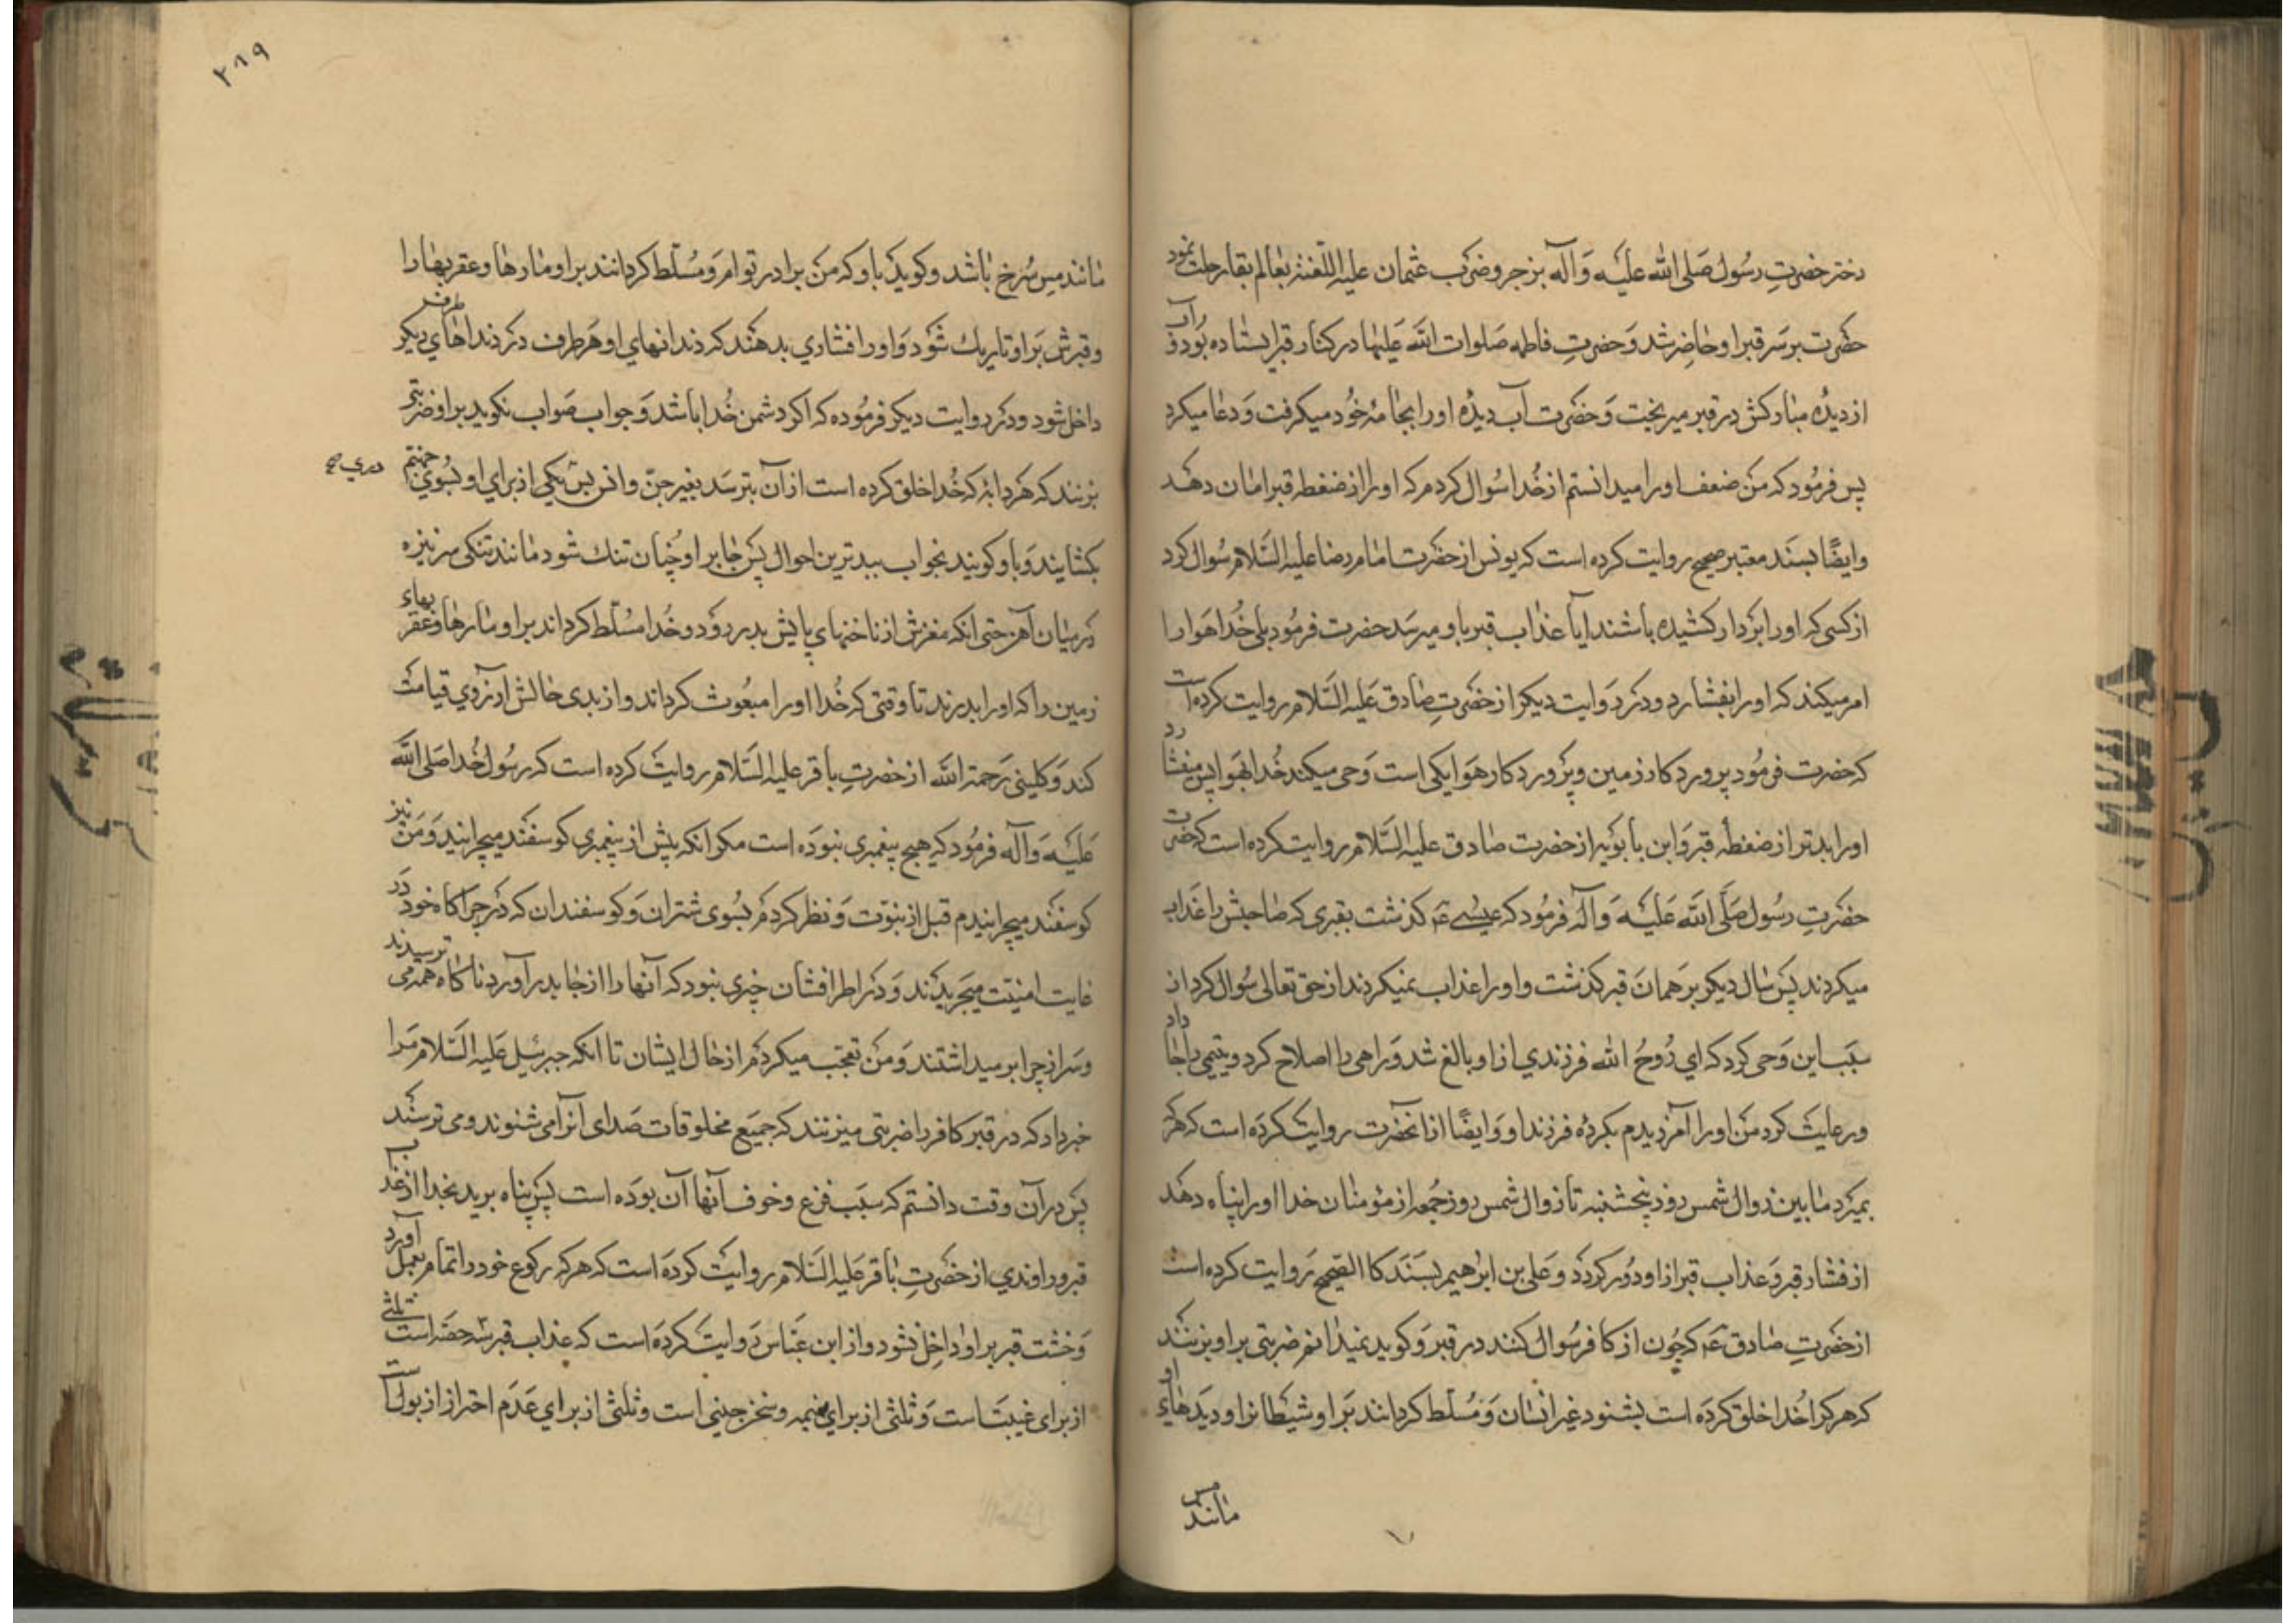 دختر حضرتِ رسُول صَلی الله عَلیَه وَ آله بزجر و ضرب عثمان علیه اللّعنة بعٰالم بقا رحلت نمود
حضرت بر سَر قبر او حٰاضِر شد وَ حضرتِ فاطمه صَلوات الله عَلیهٰا در کنار قبر ایستٰاده بُود و آب
از دیدُه مبٰارکش در قبر میریخت وَ حضرت آب دیدُه او را بجٰامهٔ خُود میکرفت وَ دعٰا میکرد
پس فرمُود که مَن ضعف او را میدانستم از خُدا سُوال کردم که او را از ضغطهٔ قبر امٰان دهَد
وایضًا بسنَد معتبر صحیح روایت کرده است که یونس از حضرت امٰام رضا علیه السَّلام سُوال کرد
از کسی که او را بردار کشیده باشند ایا عذاب قبر باو میرسَد حضرت فرمُود بلی خُدا هَوا را
امر میکند که او را بفشارد و در رَوایت دیکر از حضرتِ صٰادق عَلیه السَّلام روایت کرده است
که حضرت فرمُود پرورد کار زمین و پَروَرد کار هَوا یکی است وَحی میکند خُدا بهَوا پس میفشارد
او را بدتر از ضغطهٔ قبر وَ ابن بابُویه از حضرت صٰادق علیه السَّلام روایت کرده است که حضرت
حضرتِ رسُول صَلَّی الله عَلیَه وَ آله فرمُود که عیسیٰ عَ کذشت بقبری که صٰاحبش را عَذاب
میکردند پَس سٰال دیکر بر هَمان قبر کذشت و او را عذاب نمیکردند از حق تعٰالی سُوال کرد از
سَبب این وَحی کرد که ای رُوحُ الله فرزندی از او بالغ شد وَ راهی را اصلاح کرد و یتیمی را جا داد
و رعایت کرد من او را آمرزیدم بکردهٔ فرزند او وَ ایضًا از انحضرت روایت کرده است که هر که
بمیرد مٰا بین زوال شمس روز پنجشنبه تا زوال شمس روز جُمعه از مؤمنٰان خدا او را پناه دهَد
از فشار قبر وَ عذاب قبر از او دُور کردَد وَ علی بن ابرٰهیم بسَندَ کا الصَّحیح رَوایت کرده است
از حضرتِ صٰادق عَ که چُون از کافر سُوال کنند در قبر وَ کوید نمیدٰانم ضربتی بر او بزنند
که هر که را خُدا خلق کرَده است بشنود غیر انسٰان وَ مُسلّط کردٰانند بَر او شیطٰانرا و دیدَهٰای او
مانند مس
۲۸۹
مٰانند مِس سُرخ بٰاشد و کوید باو که مَن برادر توام وَ مُسلّط کردٰانند بر او مٰارهٰا و عقربهٰا را
و قبرش بَر او تاریك شوَد وَ او را فشاری بدهند که دندانهای او هَر طرف در دندانهای طرف دیکر
داخل شود و در روایت دیکر فرمُوده که اکر دشمن خُدا باشد وَ جواب صَواب نکوید بر او ضربتی
بزنند که هر دابّه که خُدا خلق کرده است از آن بترسَد بغیر جنّ و انس پس یکی از برای او بسُوی جهنّم
دری ص
بکشایند وَ باو کویند بخواب ببدترین احوال پَس جٰا بر او چُنان تنك شود مٰانند تنکی سر نیزه
در میٰان آهن حتی انکه مغزش از نٰاخنهای پایش بدر روَد و خُدا مسُلّط کرداند بر او مٰارها و عقربهاء
زمین را که او را بدرند تا وقتی که خُدا او را مبعُوث کرداند و از بدی حٰالش ارزوی قیامت
کند وَ کلینی رَحمة الله از حضرتِ باقر علیه السَّلام روایت کرده است که رسُول خُدا صَلی الله
عَلیَه وَ آله فرمُود که هیچ پیغمبری نبودَه است مکر انکه پیش از پیغمبری کوسفند میچرانید وَ مَن نیز
کوسفند میچرانیدم قبل از نبوّت وَ نظر کردم بسُوی شتران وَ کوسفندان که در چراکاه خود در
غٰایت امنیّت میچریدَند وَ در اطرافشان چیزی نبود که آنها را از جٰا بدر آورد ناکٰاه همه می ترسیدند
و سَر از چرا بر میداشتند وَ من تعجّب میکردم از حٰال ایشان تا انکه جبرئیل عَلیه السَّلام مَرا
خبر داد که در قبر کافر را ضربتی میزنند که جمیَع مخلوقات صَدای آنرا می شنوند و می ترسند
پَس در آن وقت دانستم که سبَب فزع و خوف آنها آن بودَه است پَس پناه برید بخدا از عذاب
قبر و راوندی از حضرتِ بٰاقر عَلیه السَّلام روایت کردَه است که هر که رکوع خود را تمٰام بعمل آورد
وَحشت قبر بر او داخل نشود و از ابن عبّاس رَوایت کردَه است که عذاب قبر سَه حصّه است ثلثی
از برای غیبت است وَ ثلثی از برای نمیمه و سخن چینی است و ثلثی از برای عَدَم احتراز از بول است